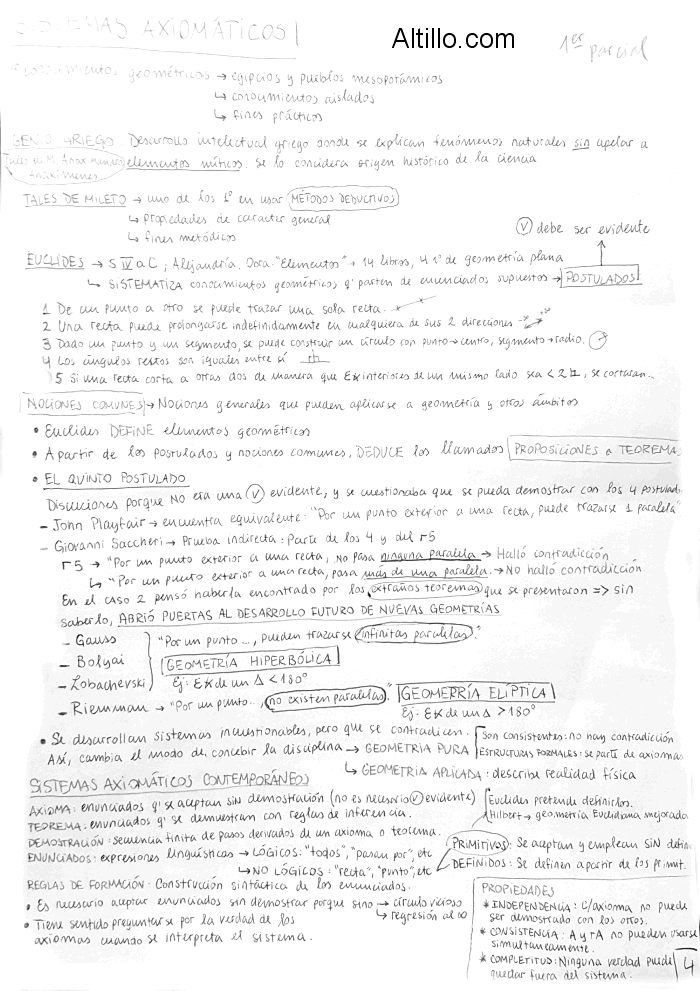 SISTEMAS AXIOMÁTICOS
Altillo.com
1er parcial
conocimientos geométricos → egipcios y pueblos mesopotámicos
↳ conocimientos aislados
↳ fines prácticos
GENIO GRIEGO Desarrollo intelectual griego donde se explican fenómenos naturales sin apelar a
Tales de M. Anaximandro, elementos míticos. Se lo concidera origen histórico de la ciencia
Anaxímenes
TALES DE MILETO → uno de los 1º en usar MÉTODOS DEDUCTIVOS
↳ propiedades de caracter general
↳ fines metódicos
Ⓥ debe ser evidente
EUCLÍDES → S IV a C, Alejandría, Obra: "Elementos" → 14 libros, 4 1º de geometría plana
↳ SISTEMATIZA conocimientos geométricos q' parten de enunciados supuestos → POSTULADOS
1 De un punto a otro se puede trazar una sola recta.
2 Una recta puede prolongarse indefinidamente en cualquiera de sus 2 direciones
3 Dado un punto y un segmento, se puede construir un círculo con punto → centro, segmento → radio.
4 Los ángulos rectos son iguales entre sí
5 Si una recta corta a otras dos de manera que interiores de un mismo lado sea < 2, se cortaran.
NOCIONES COMUNES → Nociones generales que pueden aplicarse a geometría y otros ámbitos
• Euclides DEFINE elementos geométricos
• A partir de los postulados y nociones comunes, DEDUCE los llamados PROPOSICIONES o TEOREMA
• EL QUINTO POSTULADO
Discuciones porque NO era una Ⓥ evidente, y se cuestionaba que se pueda demostrar con los 4 postulad
- John Playfair → encuentra equivalente: "Por un punto exterior a una recta, puede trazarse 1 paralela"
- Giovanni Saccheri → Prueba indirecta: Parte de los 4 y del ┌5
┌5 → "Por un punto exterior a una recta, no pasa ninguna paralela → Halló contradicción
↳ "Por un punto exterior a una recta, pasa más de una paralela. → No halló contradicción
En el caso 2 pensó haberla encontrado por los extraños teoremas que se presentaron => sin
saberlo, ABRIÓ PUERTAS AL DESARROLLO FUTURO DE NUEVAS GEOMETRÍAS
- Gauss "Por un punto ..., pueden trazarse infinitas paralelas."
- Bolyai GEOMETRÍA HIPERBÓLICA
- Lobachevski Ej: Σ∢ de un Δ < 180º
- Riemman → "Por un punto..., no existen paralelas". GEOMERRÍA ELÍPTICA
Ej: Σ∢ de un Δ > 180º
• Se desarrollan sistemas incuestionables, pero que se contradicen. Son consistentes: no hay contradicción
Así, cambia el modo de concebir la disciplina → GEOMETRÍA PURA ESTRUCTURAS FORMALES: se parte de axiomas
↳ GEOMETRIA APLICADA: describe realidad física
SISTEMAS AXIOMÁTICOS CONTEMPORÁNEOS
AXIOMA: enunciados q' se aceptan sin demostración (no es necesario Ⓥ evidente) Euclides pretende definirlos.
TEOREMA: enunciados q' se demuestran con reglas de inferencia. Hilbert → geometría Euclidiana mejorada
DEMOSTRACIÓN: secuencia finita de pasos derivados de un axioma o teorema.
ENUNCIADOS: expresiones lingüísticas → LÓGICOS: "todos", "pasan por", etc PRIMITIVOS: Se aceptan y emplean SIN defin
↳ NO LÓGICOS: "recta", "punto", etc DEFINIDOS: Se definen a partir de los primit.
REGLAS DE FORMACIÓN: Construcción sintáctica de los enunciados.
• Es necesario aceptar enunciados sin demostrar porque sino → círculo vicioso
↳ regresión al ∞
• Tiene sentido preguntarse por la verdad de los
axiomas cuando se interpreta el sistema.
PROPIEDADES
* INDEPENDENCIA: C/axioma no puede
ser demostrado con los otros.
* CONSISTENCIA: A y ┐A no pueden usarse
simultaneamente.
* COMPLETITUD: Ninguna verdad puede
quedar fuera del sistema.
4